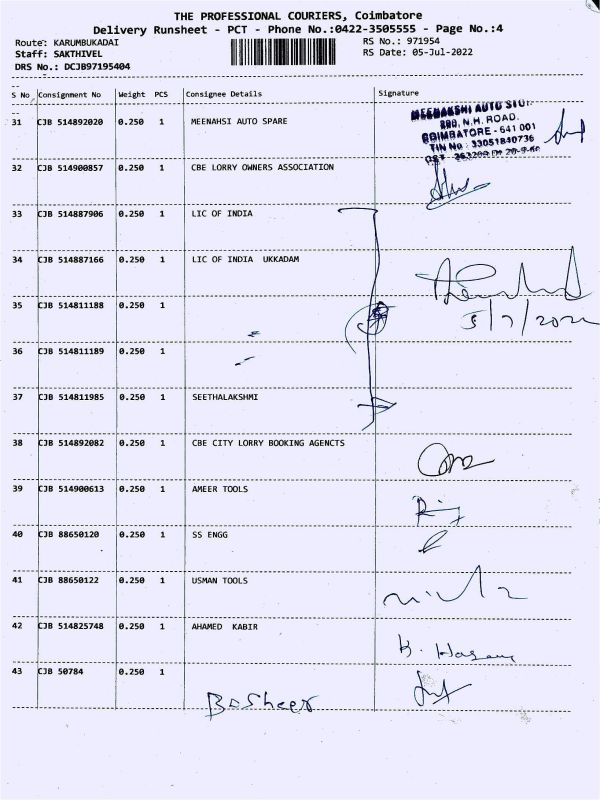 THE PROFESSIONAL COURIERS, Coimbatore
Delivery Runsheet - PCT - Phone No.:0422-3505555 - Page No.:4
Route: KARUMBUKADAI RS No.: 971954
Staff: SAKTHIVEL RS Date: 05-Jul-2022
DRS No.: DCJB97195404
S No Consignment No Weight PCS Consignee Details Signature
31 CJB 514892020 0.250 1 MEENAHSI AUTO SPARE
MEENAKSHI AUTO
N.H. ROAD.
COIMBATORE - 641 001
TIN No : 33051840736
32 CJB 514900857 0.250 1 CBE LORRY OWNERS ASSOCIATION
33 CJB 514887906 0.250 1 LIC OF INDIA
34 CJB 514887166 0.250 1 LIC OF INDIA UKKADAM
5/7/2022
35 CJB 514811188 0.250 1
36 CJB 514811189 0.250 1
37 CJB 514811985 0.250 1 SEETHALAKSHMI
38 CJB 514892082 0.250 1 CBE CITY LORRY BOOKING AGENCTS
39 CJB 514900613 0.250 1 AMEER TOOLS
40 CJB 88650120 0.250 1 SS ENGG
41 CJB 88650122 0.250 1 USMAN TOOLS
42 CJB 514825748 0.250 1 AHAMED KABIR
43 CJB 50784 0.250 1
Basheer